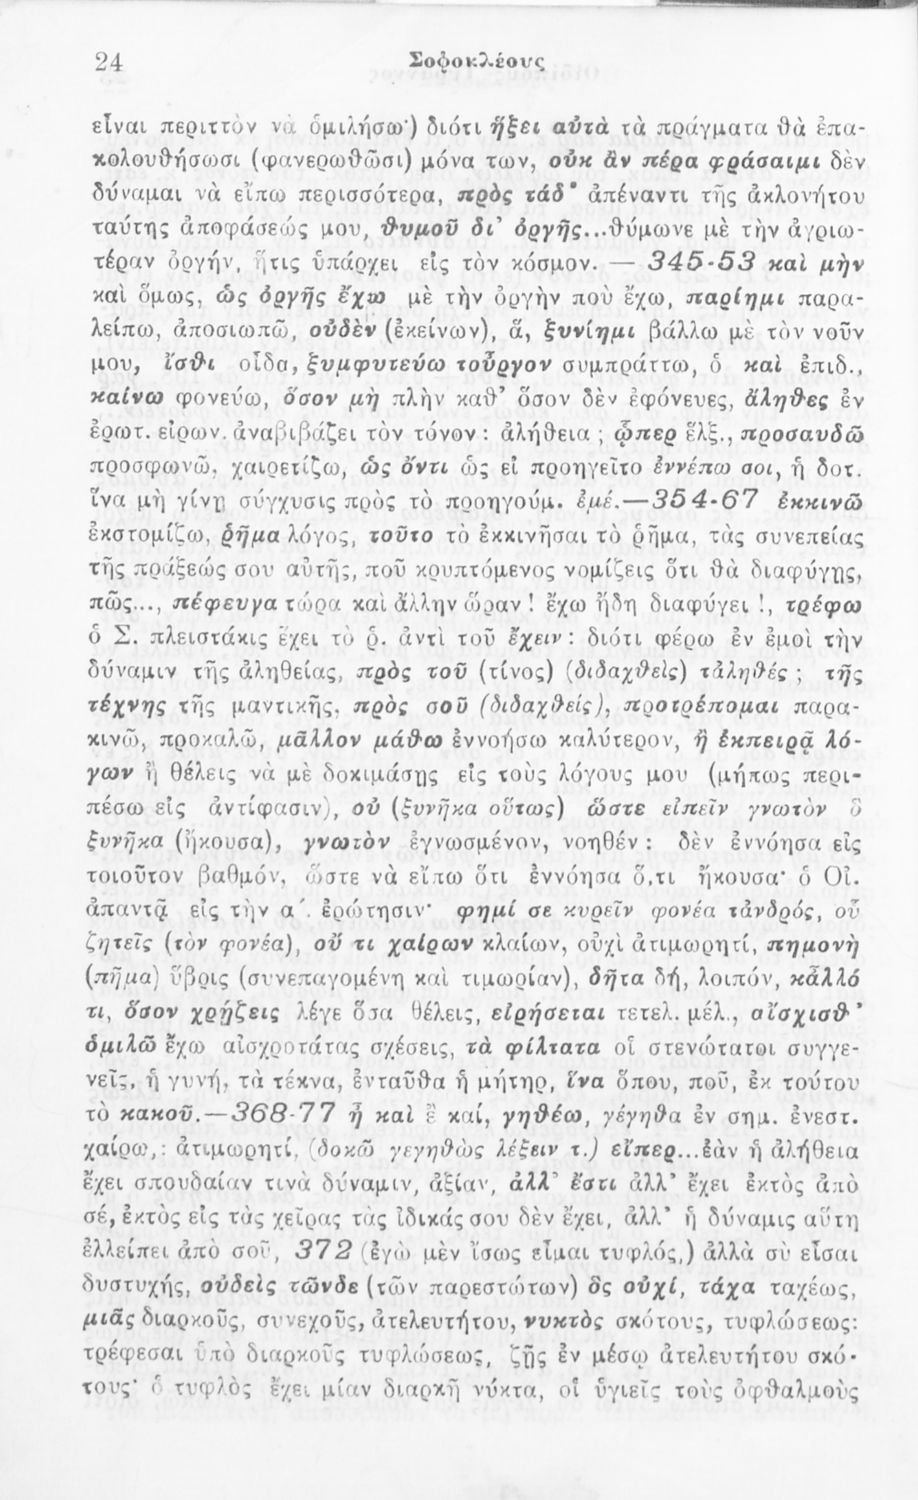 24
Σοφοκλέους
εἶναι περιττὸν νὰ ὁμιλήσω·) διότι ἥξει αὐτὰ τὰ πράγματα θὰ ἐπα-
κολουθήσωσι (φανερωθῶσι) μόνα των, οὐκ ἂν πέρα φράσαιμι δὲν
δύναμαι νὰ εἴπω περισσότερα, πρὸς τάδ' ἀπέναντι τῆς ἀκλονήτου
ταύτης ἀποφάσεώς μου, θυμοῦ δι' ὀργῆς...θύμωνε μὲ τὴν ἀγριω-
τέραν ὀργήν, ἥτις ὑπάρχει εἰς τὸν κόσμον. — 345-53 καὶ μὴν
καὶ ὅμως, ὡς ὀργῆς ἔχω μὲ τὴν ὀργὴν ποὺ ἔχω, παρίημι παρα-
λείπω, ἀποσιωπῶ, οὐδὲν (ἐκείνων), ἅ, ξυνίημι βάλλω μὲ τὸν νοῦν
μου, ἴσθι οἶδα, ξυμφυτεύω τοὖργον συμπράττω, ὁ καὶ ἐπιδ.,
καίνω φονεύω, ὅσον μὴ πλὴν καθ' ὅσον δὲν ἐφόνευες, ἄληθες ἐν
ἐρωτ. εἰρων. ἀναβιβάζει τὸν τόνον: ἀλήθεια ; ᾧπερ ἕλξ., προσαυδῶ
προσφωνῶ, χαιρετίζω, ὡς ὄντι ὡς εἰ προηγεῖτο ἐννέπω σοι, ἡ δοτ.
ἵνα μὴ γίνῃ σύγχυσις πρὸς τὸ προηγούμ. ἐμέ.—354-67 ἐκκινῶ
ἐκστομίζω, ῥῆμα λόγος, τοῦτο τὸ ἐκκινῆσαι τὸ ῥῆμα, τὰς συνεπείας
τῆς πράξεώς σου αὐτῆς, ποῦ κρυπτόμενος νομίζεις ὅτι θὰ διαφύγῃς,
πῶς..., πέφευγα τώρα καὶ ἄλλην ὥραν! ἔχω ἤδη διαφύγει !, τρέφω
ὁ Σ. πλειστάκις ἔχει τὸ ῥ. ἀντὶ τοῦ ἔχειν: διότι φέρω ἐν ἐμοὶ τὴν
δύναμιν τῆς ἀληθείας, πρὸς τοῦ (τίνος) (διδαχθεὶς) τἀληθές ; τῆς
τέχνης τῆς μαντικῆς, πρὸς σοῦ (διδαχθείς), προτρέπομαι παρα-
κινῶ, προκαλῶ, μᾶλλον μάθω ἐννοήσω καλύτερον, ἢ ἐκπειρᾷ λό-
γων ἢ θέλεις νὰ μὲ δοκιμάσῃς εἰς τοὺς λόγους μου (μήπως περι-
πέσω εἰς ἀντίφασιν), οὐ (ξυνῆκα οὕτως) ὥστε εἰπεῖν γνωτὸν ὃ
ξυνῆκα (ἤκουσα), γνωτὸν ἐγνωσμένον, νοηθέν: δὲν ἐννόησα εἰς
τοιοῦτον βαθμόν, ὥστε νὰ εἴπω ὅτι ἐννόησα ὅ,τι ἤκουσα· ὁ Οἰ.
ἀπαντᾷ εἰς τὴν α΄. ἐρώτησιν· φημί σε κυρεῖν φονέα τἀνδρός, οὗ
ζητεῖς (τὸν φονέα), οὔ τι χαίρων κλαίων, οὐχὶ ἀτιμωρητί, πημονὴ
(πῆμα) ὕβρις (συνεπαγομένη καὶ τιμωρίαν), δῆτα δή, λοιπόν, κἄλλό
τι, ὅσον χρῄζεις λέγε ὅσα θέλεις, εἰρήσεται τετελ. μέλ., αἴσχισθ'
ὁμιλῶ ἔχω αἰσχροτάτας σχέσεις, τὰ φίλτατα οἱ στενώτατοι συγγε-
νεῖς, ἡ γυνή, τὰ τέκνα, ἐνταῦθα ἡ μήτηρ, ἵνα ὅπου, ποῦ, ἐκ τούτου
τὸ κακοῦ.—368-77 ἦ καὶ ἦ καί, γηθέω, γέγηθα ἐν σημ. ἐνεστ.
χαίρω,: ἀτιμωρητί, (δοκῶ γεγηθὼς λέξειν τ.) εἴπερ...ἐὰν ἡ ἀλήθεια
ἔχει σπουδαίαν τινὰ δύναμιν, ἀξίαν, ἀλλ' ἔστι ἀλλ' ἔχει ἐκτὸς ἀπὸ
σέ, ἐκτὸς εἰς τὰς χεῖρας τὰς ἰδικάς σου δὲν ἔχει, ἀλλ' ἡ δύναμις αὕτη
ἐλλείπει ἀπὸ σοῦ, 372 (ἐγὼ μὲν ἴσως εἶμαι τυφλός,) ἀλλὰ σὺ εἶσαι
δυστυχής, οὐδεὶς τῶνδε (τῶν παρεστώτων) ὃς οὐχί, τάχα ταχέως,
μιᾶς διαρκοῦς, συνεχοῦς, ἀτελευτήτου, νυκτὸς σκότους, τυφλώσεως:
τρέφεσαι ὑπὸ διαρκοῦς τυφλώσεως, ζῇς ἐν μέσῳ ἀτελευτήτου σκό-
τους· ὁ τυφλὸς ἔχει μίαν διαρκῆ νύκτα, οἱ ὑγιεῖς τοὺς ὀφθαλμοὺς